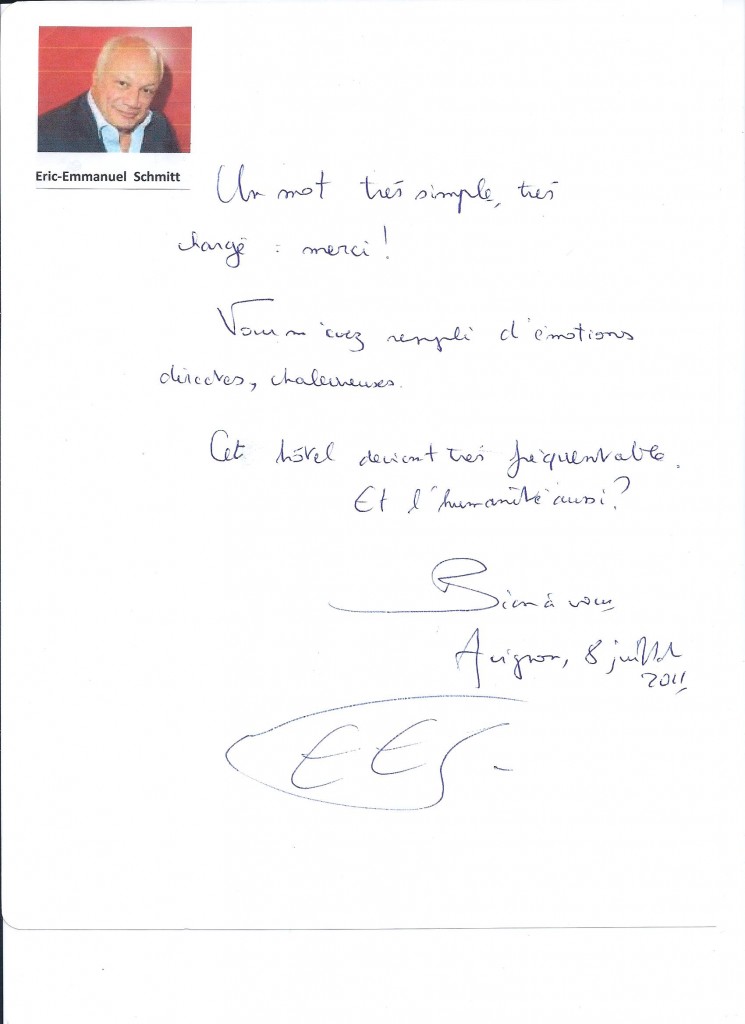 Eric-Emmanuel Schmitt
Un mot très simple, très
chargé : merci !
Vous m'avez rempli d'émotions
directes, chaleureuses.
Cet hôtel devient très fréquentable.
Et l'humanité aussi ?
Bien à vous
Avignon, 8 juillet
2011
EES